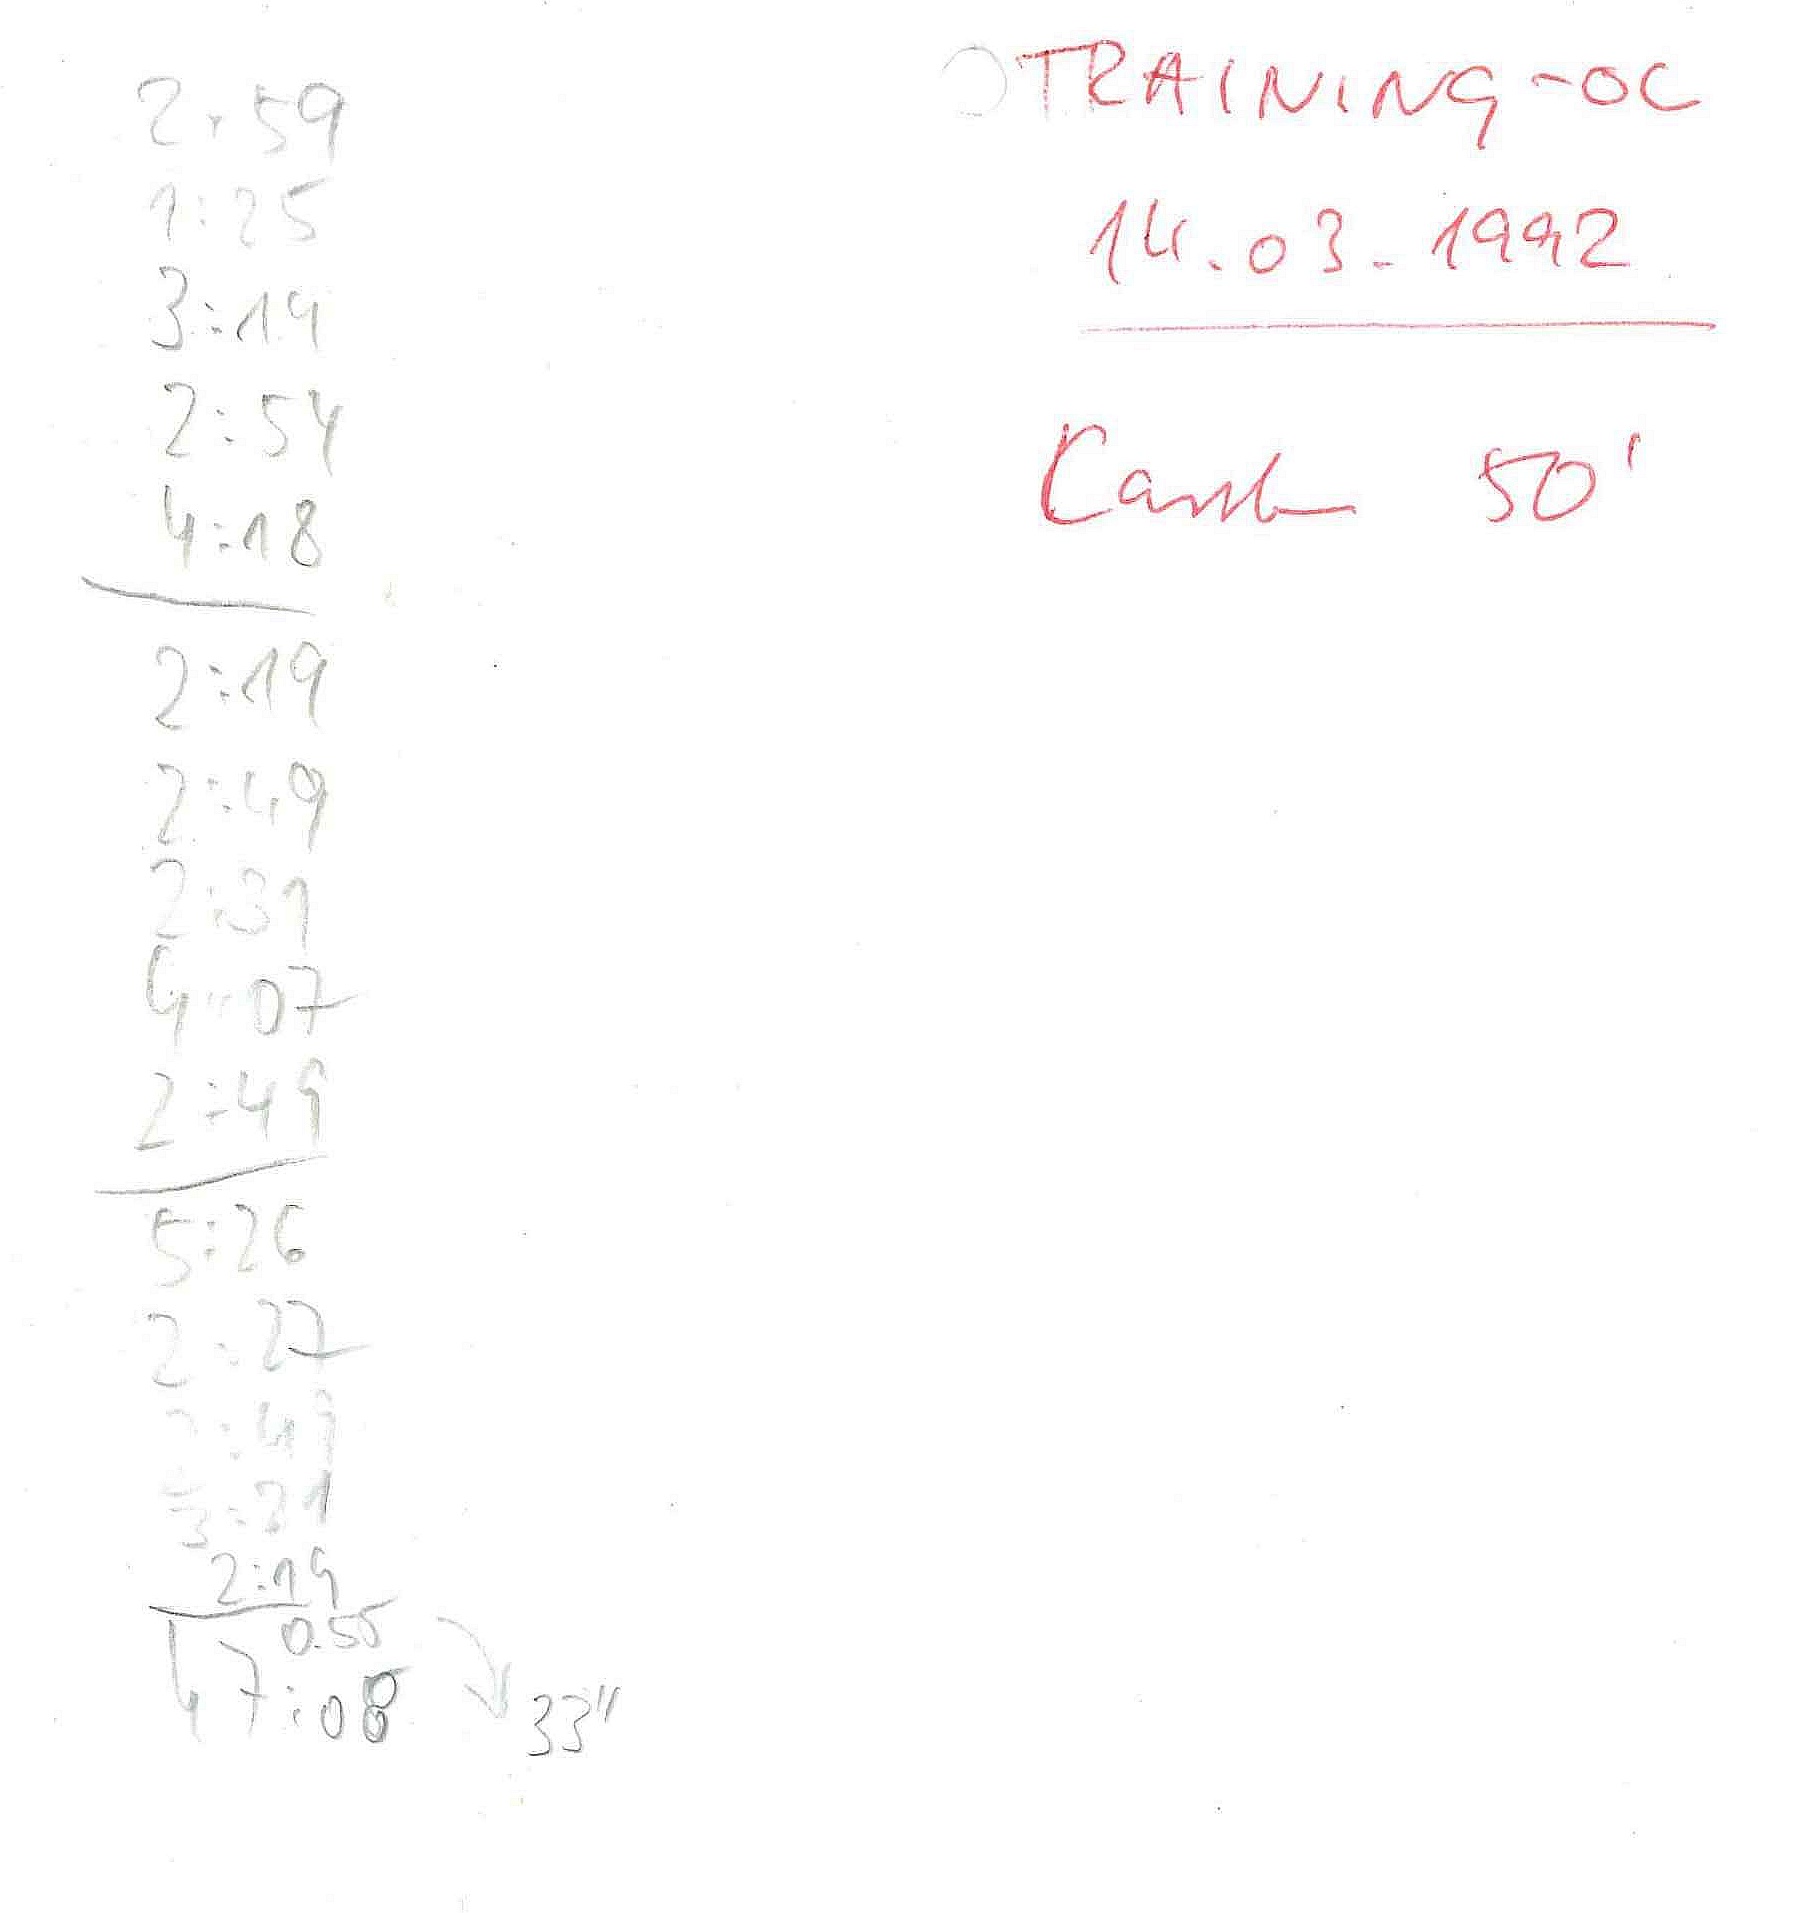 2:59
1:25
3:19
2:54
4:18
2:19
2:49
2:31
4:07
2:49
5:26
2:27
2:49
3:31
2:19
0.55
47:08
33"
TRAINING-OC
14.03.1992
50'